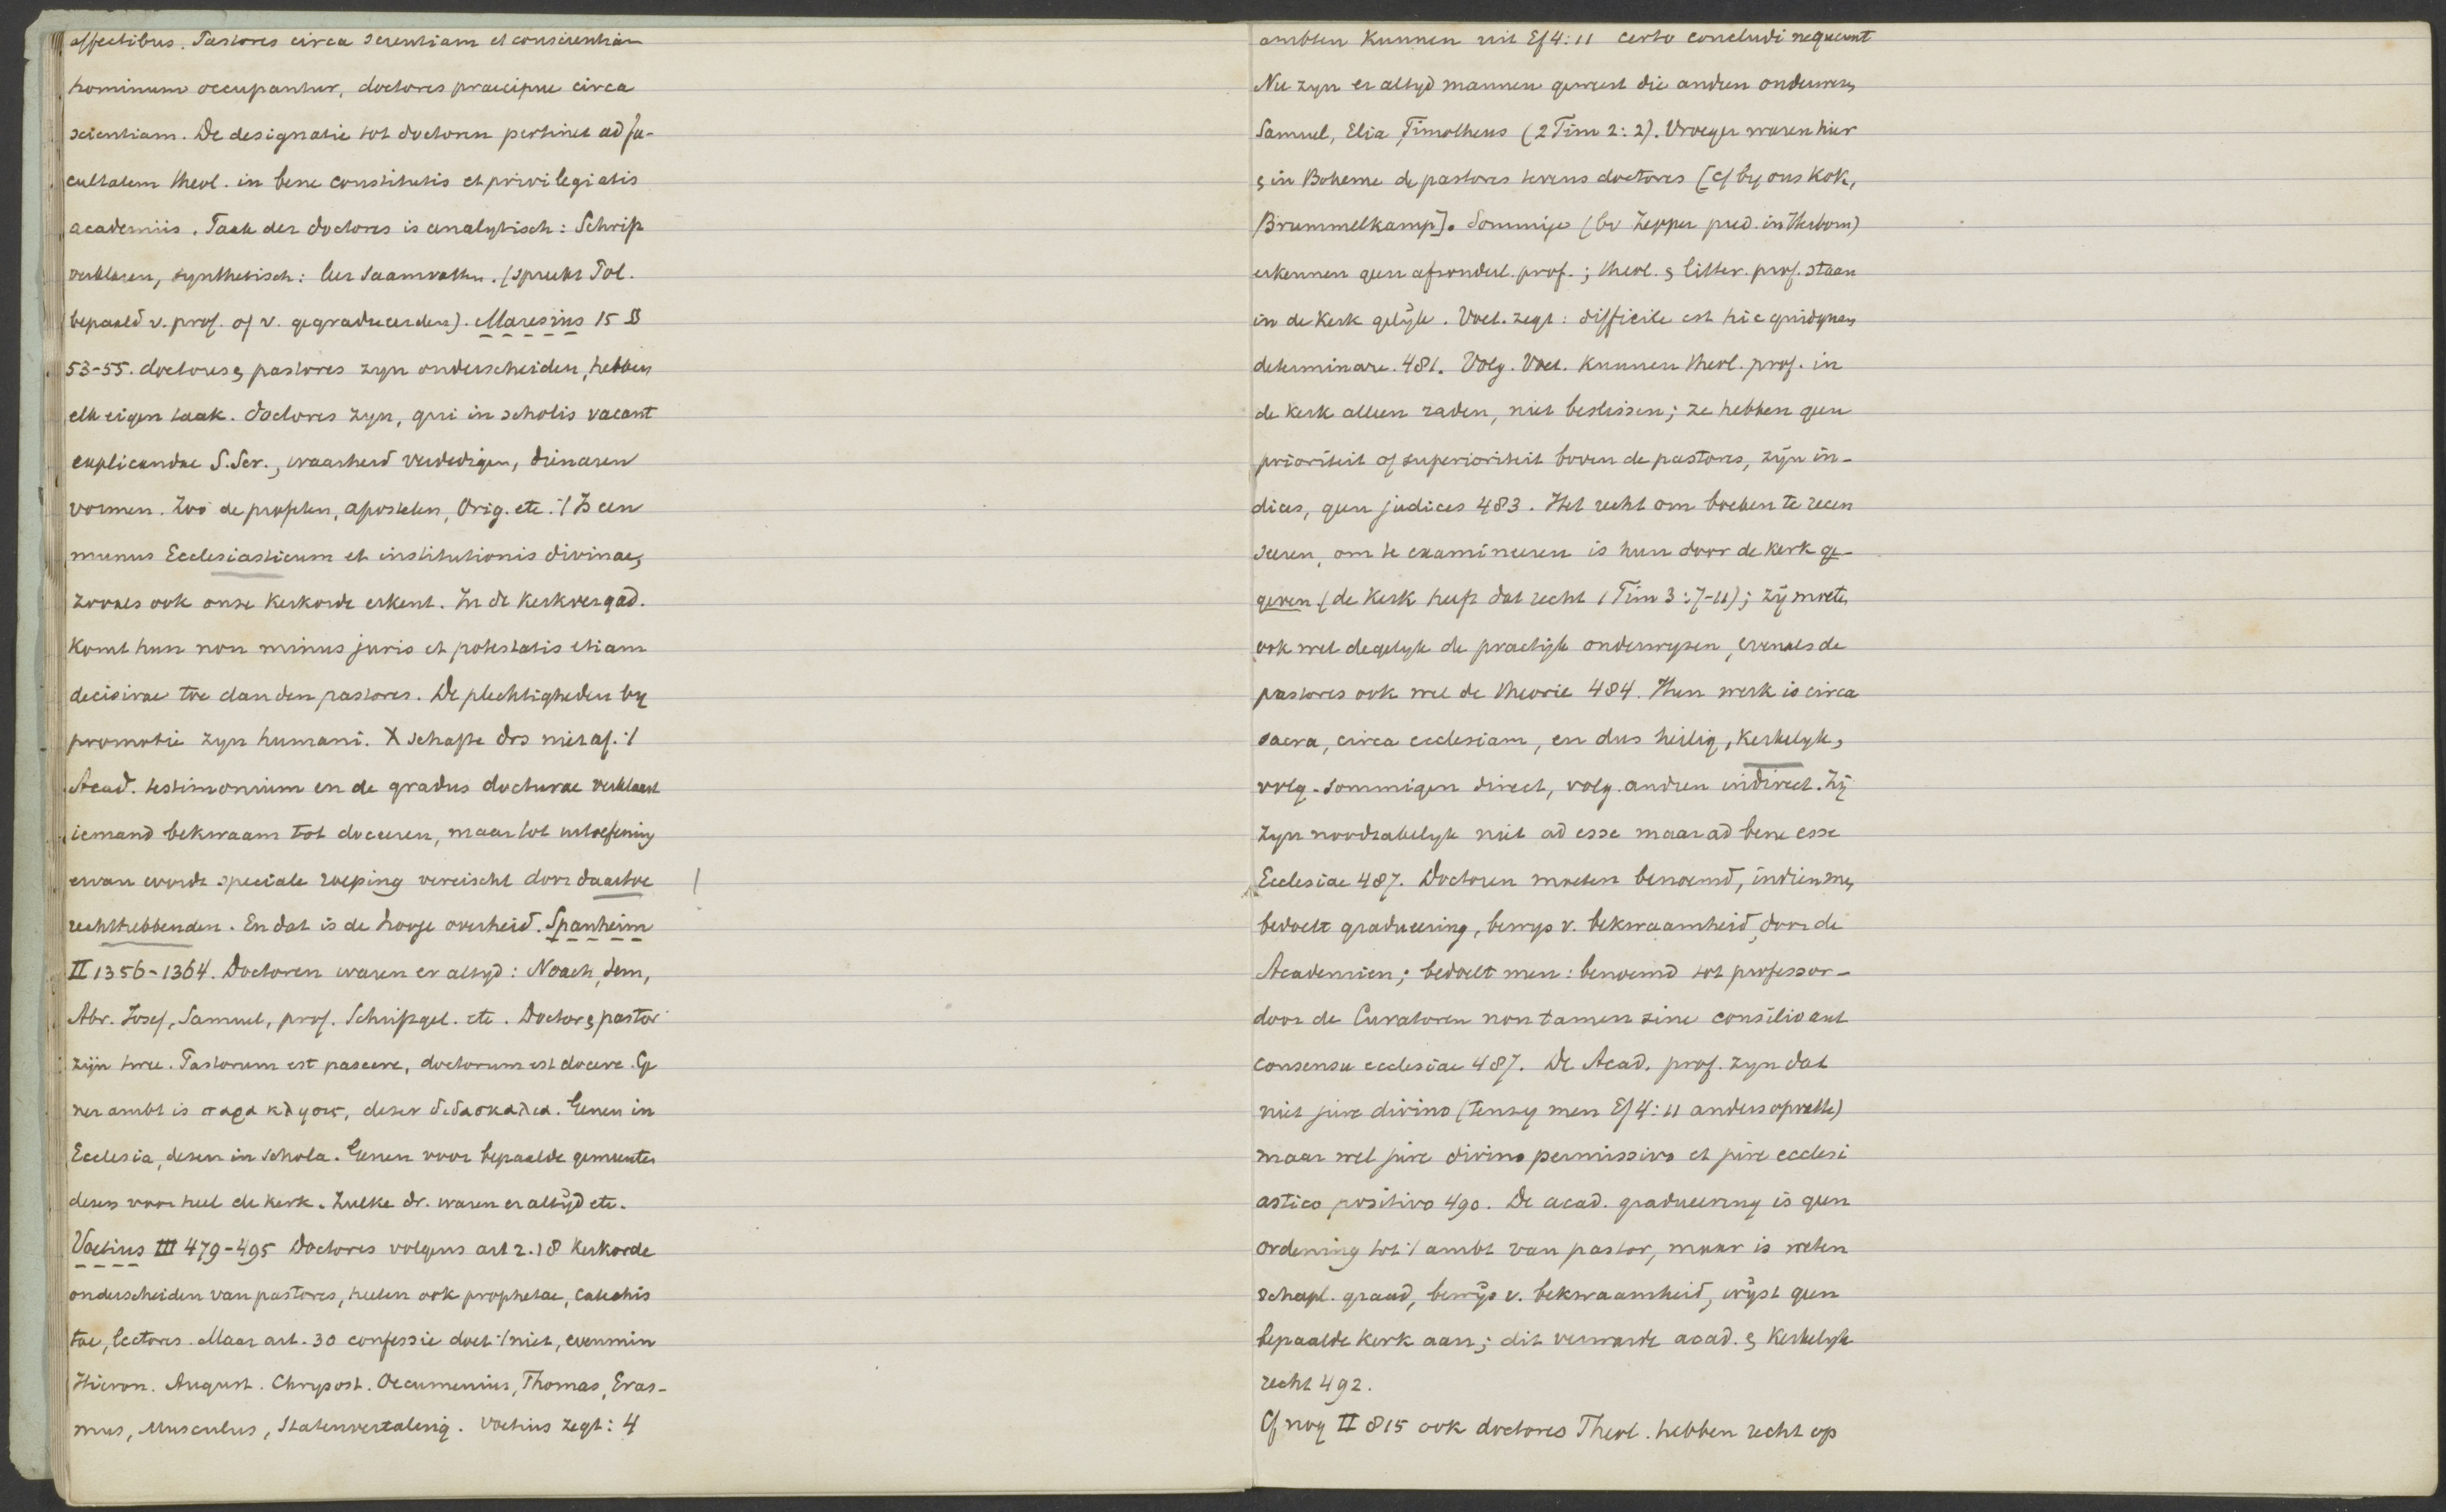 affectibus. Pastores circa scientiam et conscientiam
hominum occupantur, doctores praecipue circa
scientiam. De designatie tot doctoren pertinet ad fa-
cultatem theol. in bene constitutis et privilegiatis
academiis. Taak der doctores is analytisch: Schrift
verklaren, synthetisch: leer saamvatten. (spreekt Pol.
bepaald v. prof. of v. gegradueerden). Maresius 15 §
53-55. doctores & pastores zyn onderscheiden, hebben
elk eigen taak. doctores zyn, qui in scholis vacant
explicandae S.Scr., waarheid verdedigen, dienaren
vormen. Zoo de profeten, apostelen, Orig. etc. 't Is een
munus Ecclesiasticum et institutionis divinae,
zooals ook onze Kerkorde erkent. In de Kerkvergad.
komt hun non minus juris et potestatis etiam
decisivae toe dan den pastores. De plechtigheden by
promotie zyn humani. X schafte drs niet af. 't
Acad. testimonium en de gradus docturae verklaart
iemand bekwaam tot doceeren, maar tot uitoefening
ervan wordt speciale roeping vereischt door daartoe
rechthebbenden. En dat is de hooge overheid. Spanheim
II 1356-1364. Doctoren waren er altyd: Noach, Sem,
Abr. Josef, Samuel, prof. Schriftgel. etc. Doctor & pastor
zijn twee. Pastorum est pascere, doctorum est docere. Ge
ner ambt is παρακλησις, dezer διδασκαλια. Genen in
Ecclesia, dezen in schola. Genen voor bepaalde gemeenten
dezen voor heel de kerk. Zulke dr. waren er altijd etc.
Voetius III 479-495 Doctores volgens art 2. 18 Kerkorde
onderscheiden van pastores, heeten ook prophetae, catechis
tae, lectores. Maar art. 30 confessie doet 't niet, evenmin
Hieron. August. Chrysost. Oecumenius, Thomas, Eras-
mus, Musculus, Statenvertaling. Voetius zegt: 4
ambten kunnen uit Ef 4:11 certo concludi nequeunt
Nu zyn er altyd mannen geweest die andren onderwezen,
Samuel, Elia, Timotheus (2 Tim 2:2). Vroeger waren hier
& in Boheme de pastores tevens doctores [cf by ons Kok,
Brummelkamp]. Sommige (bv Zepper pred. in Herborn)
erkennen geen afzonderl. prof.; theol. & litter. prof. staan
in de Kerk gelijk. Voet. zegt: difficile est hic quidquam
determinare. 481. Volg. Voet. kunnen theol. prof. in
de kerk alleen raden, niet beslissen; ze hebben geen
prioriteit of superioriteit boven de pastores, zijn in-
dices, geen judices 483. Het recht om boeken te recen
seeren, om te examineeren is hun door de kerk ge-
geven (de Kerk heeft dat recht 1 Tim 3:7-11); zij moeten
ook wel degelyk de practijk onderwyzen, evenals de
pastores ook wel de theorie 484. Hun werk is circa
sacra, circa ecclesiam, en dus heilig, kerkelyk,
volg. sommigen direct, volg. andren indirect. Zij
zyn noodzakelyk niet ad esse maar ad bene esse
Ecclesiae 487. Doctoren moeten benoemd, indien men
bedoelt graduëering, bewys v. bekwaamheid, door de
Academien; bedoelt men: benoemd tot professor-
door de Curatoren non tamen sine consilio aut
consensu ecclesiae 487. De Acad. prof. zyn dat
niet jure divino (tenzy men Ef 4:11 anders opvatte)
maar wel jure divino permissivo et jure ecclesi
astico positivo 490. De acad. gradueering is geen
ordening tot 't ambt van pastor, maar is weten
schapl. graad, bewijs v. bekwaamheid, wijst geen
bepaalde kerk aan; dit verwarde acad. & kerkelyk
recht 492.
Cf nog II 815 ook doctores Theol. hebben recht op